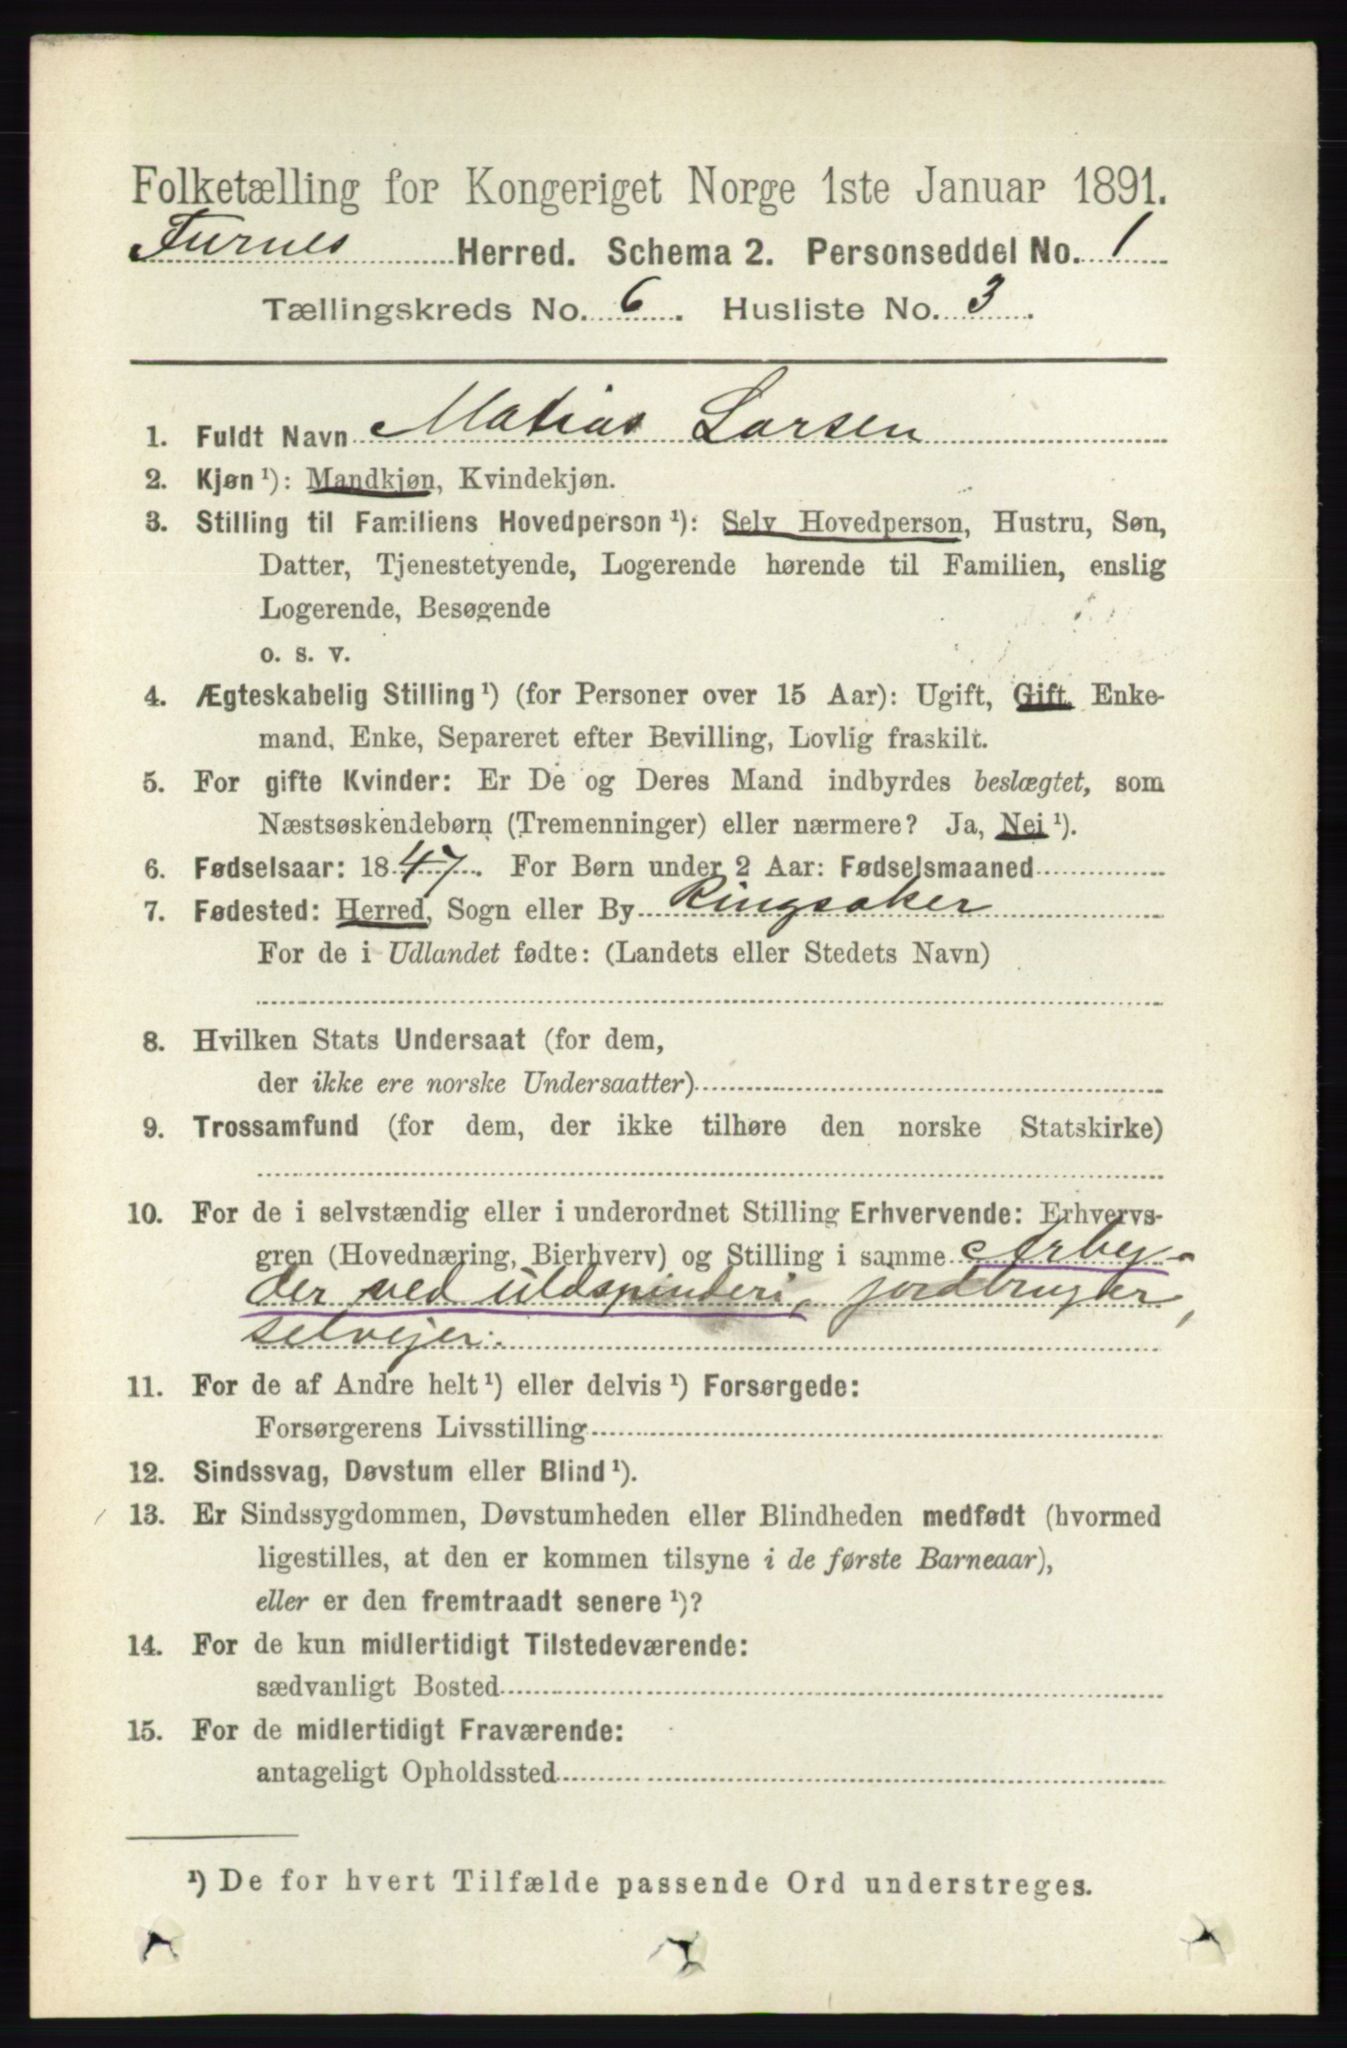 Folketælling for Kongeriget Norge 1ste Januar 1891.
Furnes Herred. Schema 2. Personseddel No. 1
Tællingskreds No. 6. Husliste No. 3.
1. Fuldt Navn Matias Larsen
2. Kjøn ¹): Mandkjøn, Kvindekjøn.
3. Stilling til Familiens Hovedperson ¹): Selv Hovedperson, Hustru, Søn,
Datter, Tjenestetyende, Logerende hørende til Familien, enslig
Logerende, Besøgende
o. s. v.
4. Ægteskabelig Stilling ¹) (for Personer over 15 Aar): Ugift, Gift, Enke-
mand, Enke, Separeret efter Bevilling, Lovlig fraskilt.
5. For gifte Kvinder: Er De og Deres Mand indbyrdes beslægtet, som
Næstsøskendebørn (Tremenninger) eller nærmere? Ja, Nei ¹).
6. Fødselsaar: 1847. For Børn under 2 Aar: Fødselsmaaned
7. Fødested: Herred, Sogn eller By Ringsaker
For de i Udlandet fødte: (Landets eller Stedets Navn)
8. Hvilken Stats Undersaat (for dem,
der ikke ere norske Undersaatter)
9. Trossamfund (for dem, der ikke tilhøre den norske Statskirke)
10. For de i selvstændig eller i underordnet Stilling Erhvervende: Erhvervs-
gren (Hovednæring, Bierhverv) og Stilling i samme Arbey-
der ved uldspinderi, jordbruger,
selvejer.
11. For de af Andre helt ¹) eller delvis ¹) Forsørgede:
Forsørgerens Livsstilling
12. Sindssvag, Døvstum eller Blind ¹).
13. Er Sindssygdommen, Døvstumheden eller Blindheden medfødt (hvormed
ligestilles, at den er kommen tilsyne i de første Barneaar),
eller er den fremtraadt senere ¹)?
14. For de kun midlertidigt Tilstedeværende:
sædvanligt Bosted
15. For de midlertidigt Fraværende:
antageligt Opholdssted
¹) De for hvert Tilfælde passende Ord understreges.